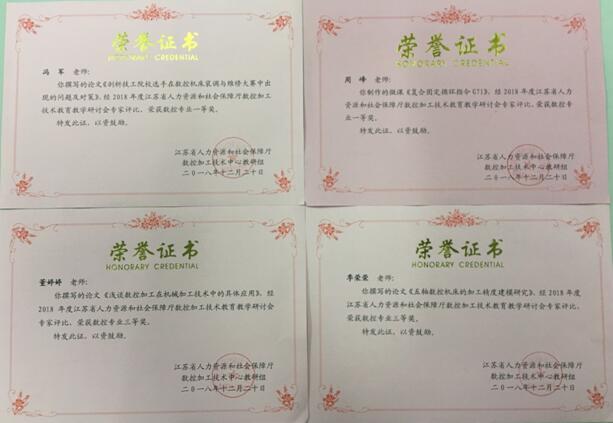 荣誉证书
HONORARY CREDENTIAL
冯 军 老师:
你撰写的论文《剖析技工院校选手在数控机床装调与维修大赛中出
现的问题及对策》,经2018年度江苏省人力资源和社会保障厅数控加工
技术教育教学研讨会专家评比,荣获数控专业一等奖。
特发此证,以资鼓励。
江苏省人力资源和社会保障厅
数控加工技术中心教研组
二〇一八年十二月二十日
荣誉证书
HONORARY CREDENTIAL
周 峰 老师:
你制作的微课《复合固定循环指令G71》,经2018年度江苏省人力
资源和社会保障厅数控加工技术教育教学研讨会专家评比,荣获数控专业
一等奖。
特发此证,以资鼓励。
江苏省人力资源和社会保障厅
数控加工技术中心教研组
二〇一八年十二月二十日
荣誉证书
HONORARY CREDENTIAL
董婷婷 老师:
你撰写的论文《浅谈数控加工在机械加工技术中的具体应用》,经
2018年度江苏省人力资源和社会保障厅数控加工技术教育教学研讨会
专家评比,荣获数控专业三等奖。
特发此证,以资鼓励。
江苏省人力资源和社会保障厅
数控加工技术中心教研组
二〇一八年十二月二十日
荣誉证书
HONORARY CREDENTIAL
李荣荣 老师:
你撰写的论文《五轴数控机床的加工精度建模研究》,经2018年度
江苏省人力资源和社会保障厅数控加工技术教育教学研讨会专家评比,
荣获数控专业三等奖。
特发此证,以资鼓励。
江苏省人力资源和社会保障厅
数控加工技术中心教研组
二〇一八年十二月二十日